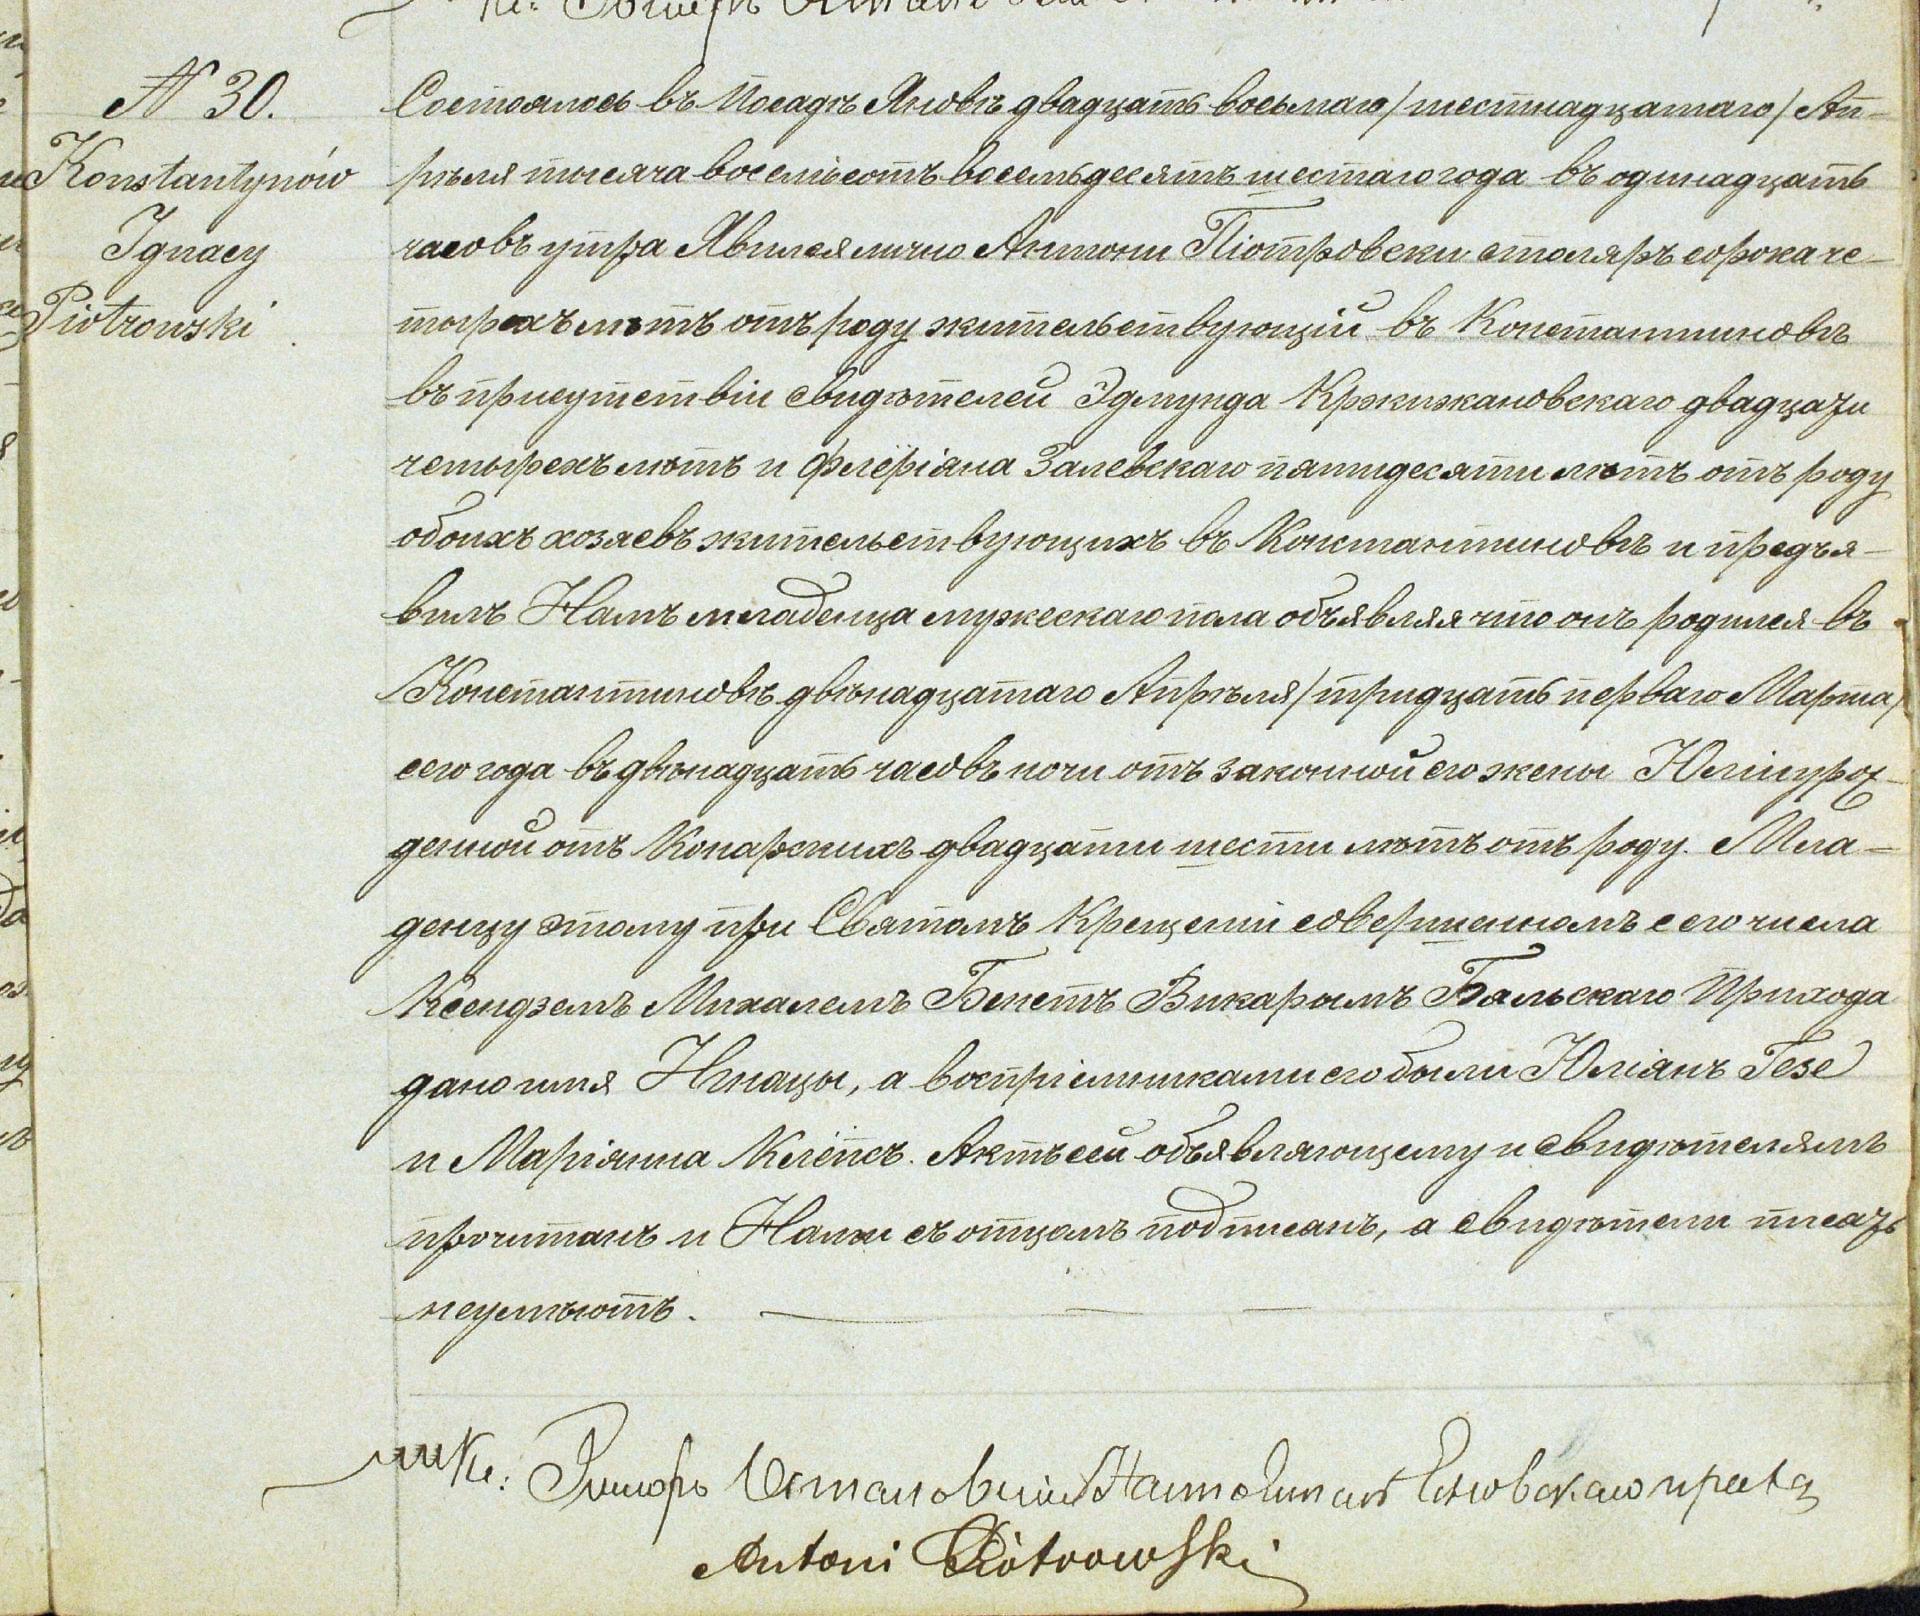 № 30.
Konstantynów
Ignacy
Piotrowski
Состоялось въ Посадѣ Яновѣ двадцать восьмаго /шестнадцатаго/ Ап-
рѣля тысяча восемьсотъ восемьдесятъ шестаго года въ одинадцать
часовъ утра Явился лично Антони Піотровски столяръ сорока че-
тырехъ лѣтъ отъ роду жительствующій въ Константиновѣ
въ присутствіи свидѣтелей Эдмунда Кржижановскаго двадцати
четырехъ лѣтъ и Флёріяна Залевскаго пятидесяти лѣтъ отъ роду
обоихъ хозяевъ жительствующихъ въ Константиновѣ и предъя-
вилъ Намъ младенца мужескаго пола объявляя что онъ родился въ
Константиновѣ двѣнадцатаго Апрѣля /тридцать перваго Марта/
сего года въ двѣнадцать часовъ ночи отъ законной его жены Юліи урож-
денной отъ Конарскихъ двадцати шести лѣтъ отъ роду. Мла-
денцу этому при Святомъ Крещеніи совершенномъ сего числа
Ксендземъ Михалемъ Бенетъ Викарымъ Бяльскаго Прихода
дано имя Игнацы, а воспріемниками его были Юліянъ Гезе
и Маріянна Клёпсъ. Актъ сей объявляющему и свидѣтелямъ
прочитанъ и Нами съ отцомъ подписанъ, а свидѣтели писать
неумѣютъ.
Кс:
Antoni Piotrowski